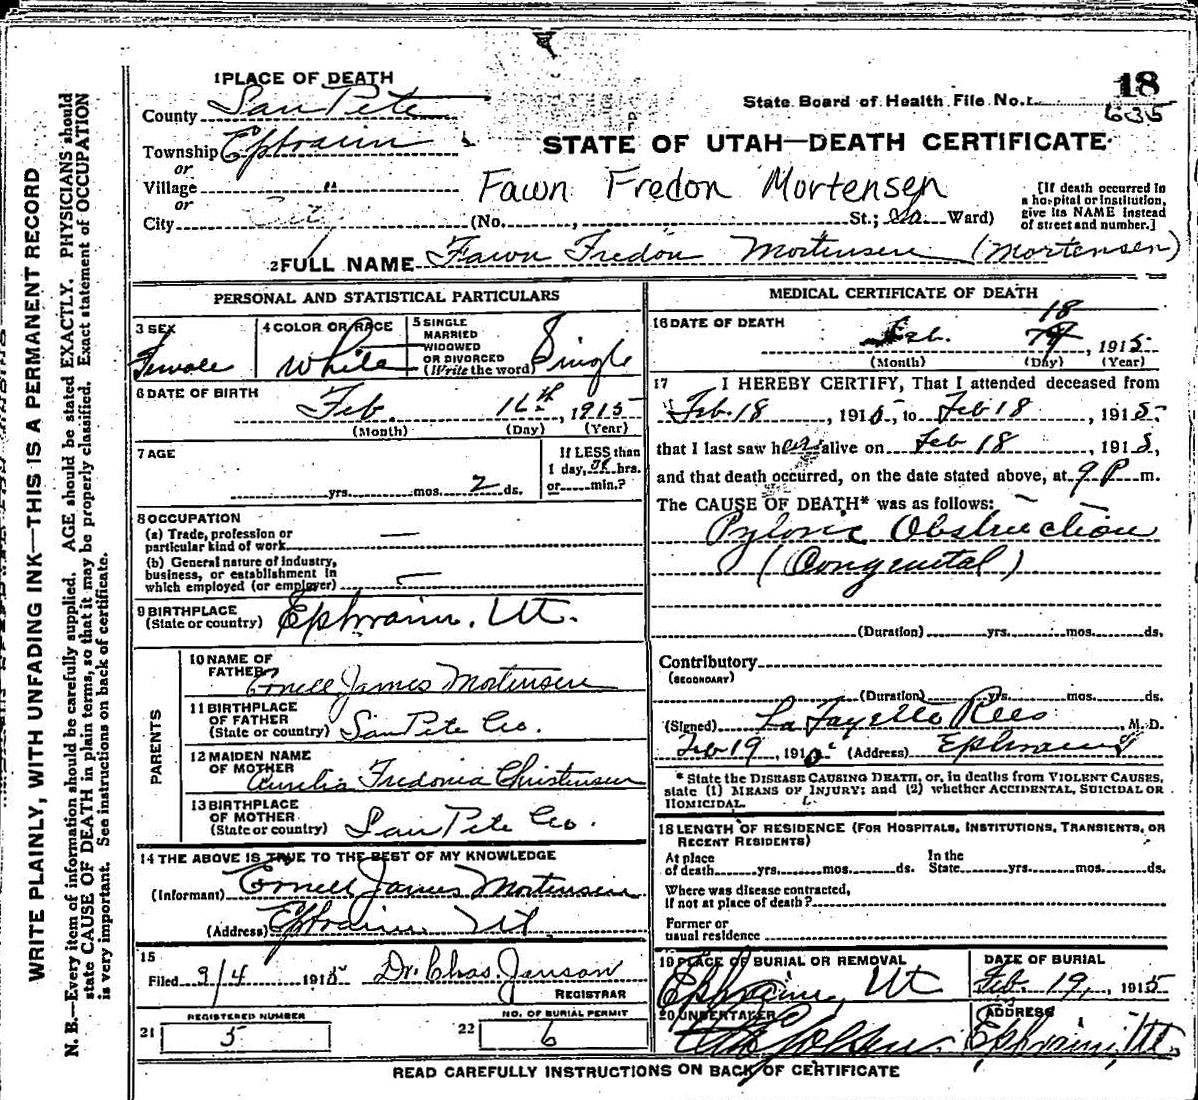 18
1 PLACE OF DEATH
County San Pete
State Board of Health File No. 635
Township Ephraim
STATE OF UTAH—DEATH CERTIFICATE
or
Village "
Fawn Fredon Mortensen
[If death occurred in a hospital or institution, give its NAME instead of street and number.]
or
City (No. , St.; Ward)
2 FULL NAME Fawn Fredon Mortensen (Mortensen)
PERSONAL AND STATISTICAL PARTICULARS
3 SEX Female
4 COLOR OR RACE White
5 SINGLE MARRIED WIDOWED OR DIVORCED (Write the word) Single
6 DATE OF BIRTH Feb. 16th, 1915
(Month) (Day) (Year)
7 AGE
yrs. mos. 2 ds.
If LESS than
1 day, hrs.
or min.?
8 OCCUPATION
(a) Trade, profession or
particular kind of work —
(b) General nature of industry,
business, or establishment in
which employed (or employer) —
9 BIRTHPLACE
(State or country) Ephraim, Ut.
PARENTS
10 NAME OF
FATHER Ornell James Mortensen
11 BIRTHPLACE
OF FATHER
(State or country) San Pete Co.
12 MAIDEN NAME
OF MOTHER Aurelia Fredonia Christensen
13 BIRTHPLACE
OF MOTHER
(State or country) San Pete Co.
14 THE ABOVE IS TRUE TO THE BEST OF MY KNOWLEDGE
(Informant) Ornell James Mortensen
(Address) Ephraim Ut.
15
Filed 9/4 1915 Dr. Chas. Jenson
REGISTRAR
REGISTERED NUMBER
21 5
NO. OF BURIAL PERMIT
22 6
MEDICAL CERTIFICATE OF DEATH
16 DATE OF DEATH
Feb. 18, 1915
(Month) (Day) (Year)
17 I HEREBY CERTIFY, That I attended deceased from
Feb. 18, 1915, to Feb 18, 1915
that I last saw her alive on Feb 18, 1915,
and that death occurred, on the date stated above, at 9 P. m.
The CAUSE OF DEATH* was as follows:
Pyloric Obstruction
(Congenital)
(Duration) yrs. mos. ds.
Contributory
(SECONDARY)
(Duration) yrs. mos. ds.
(Signed) La Fayette Rees, M. D.
Feb 19, 1915 (Address) Ephraim
* State the DISEASE CAUSING DEATH, or, in deaths from VIOLENT CAUSES,
state (1) MEANS OF INJURY; and (2) whether ACCIDENTAL, SUICIDAL OR
HOMICIDAL.
18 LENGTH OF RESIDENCE (FOR HOSPITALS, INSTITUTIONS, TRANSIENTS, OR
RECENT RESIDENTS)
At place
of death yrs. mos. ds.
In the
State yrs. mos. ds.
Where was disease contracted,
if not at place of death?
Former or
usual residence
19 PLACE OF BURIAL OR REMOVAL
Ephraim, Ut
DATE OF BURIAL
Feb. 19, 1915
20 UNDERTAKER
ADDRESS
Ephraim, Ut.
READ CAREFULLY INSTRUCTIONS ON BACK OF CERTIFICATE
WRITE PLAINLY, WITH UNFADING INK—THIS IS A PERMANENT RECORD
N. B.—Every item of information should be carefully supplied. AGE should be stated EXACTLY. PHYSICIANS should
state CAUSE OF DEATH in plain terms, so that it may be properly classified. Exact statement of OCCUPATION
is very important. See instructions on back of certificate.